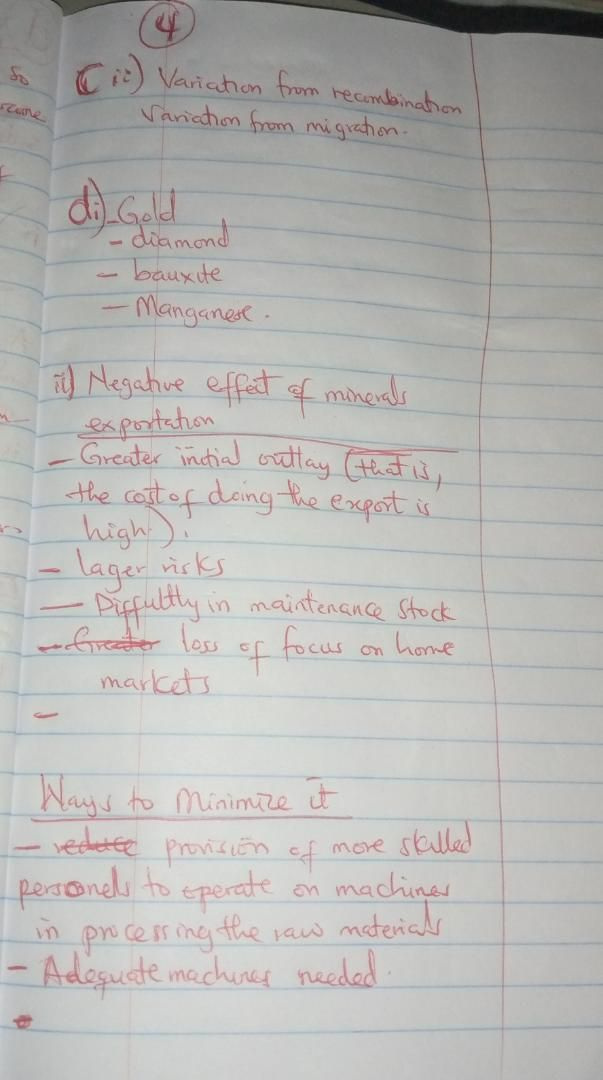 4
Cii) Variation from recombination
Variation from migration.
di) - Gold
- diamond
- bauxite
- Manganese.
ii) Negative effect of minerals
exportation
- Greater initial outlay (that is,
the cost of doing the export is
high).
- lager risks
- Diffultly in maintenance stock
- Greater loss of focus on home
markets
-
Ways to Minimize it
- reduce provision of more skilled
personels to operate on machines
in processing the raw materials
- Adequate machines needed.